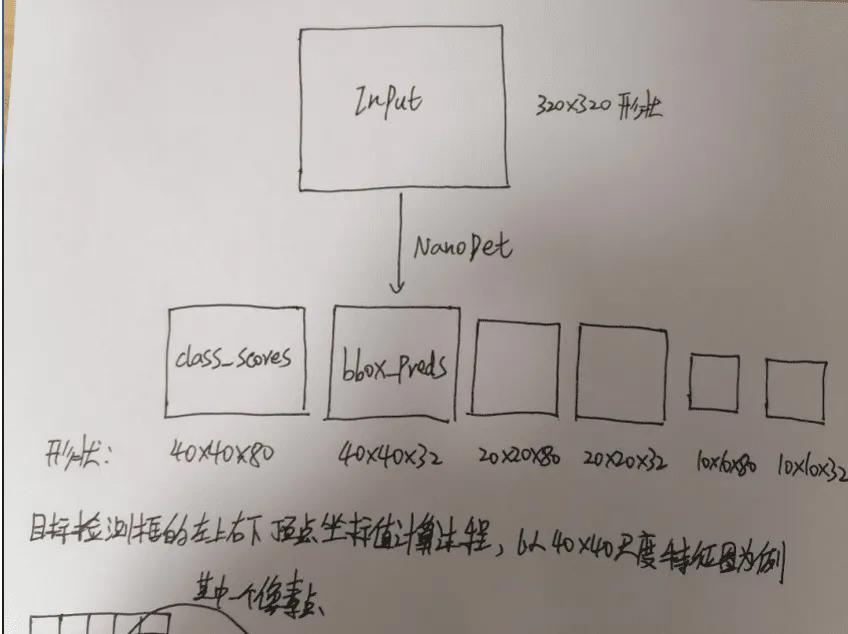 Input
320x320 形状
NanoDet
class_scores
bbox_preds
形状: 40x40x80 40x40x32 20x20x80 20x20x32 10x10x80 10x10x32
目标检测框的左上右下顶点坐标值计算过程,以40x40尺度特征图为例
其中一个像素点